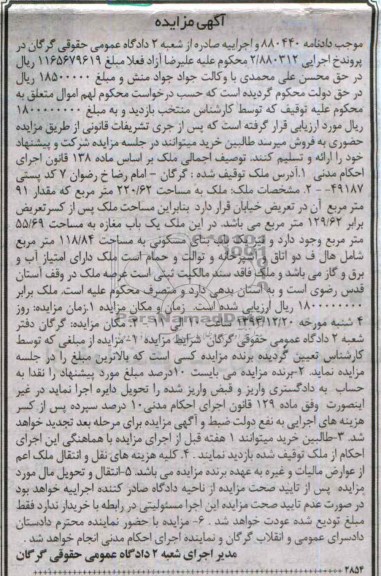 آگهی مزایده
موجب دادنامه ۸۸۰۴۴۰ و اجراییه صادره از شعبه ۲ دادگاه عمومی حقوقی گرگان در
پرونده اجرایی ۲/۸۸۰۳۱۲ محکوم علیه علیرضا آزاد فعلا مبلغ ۱۱۶۵۶۷۹۶۱۹ ریال
در حق محسن علی محمدی با وکالت جواد جواد منش و مبلغ ۱۸۵۰۰۰۰۰ ریال
در حق دولت محکوم گردیده است که حسب درخواست محکوم لهم اموال متعلق به
محکوم علیه توقیف که توسط کارشناس منتخب بازدید و به مبلغ ۱۸۰۰۰۰۰۰۰۰
ریال مورد ارزیابی قرار گرفته است که پس از جری تشریفات قانونی از طریق مزایده
حضوری به فروش میرسد طالبین خرید میتوانند در جلسه مزایده شرکت و پیشنهاد
خود را ارائه و تسلیم کنند. توصیف اجمالی ملک بر اساس ماده ۱۳۸ قانون اجرای
احکام مدنی ۱.آدرس ملک توقیف شده : گرگان – امام رضا خ رضوان ۷ کد پستی
۴۹۱۸۷- – ۲. مشخصات ملک: ملک به مساحت ۲۲۰/۶۲ متر مربع که مقدار ۹۱
متر مربع آن در تعریض خیابان قرار دارد بنابراین مساحت ملک پس از کسرتعریض
برابر ۱۲۹/۶۲ متر مربع می باشد. در این ملک یک باب مغازه به مساحت ۵۵/۶۹
متر مربع وجود دارد و بنای مسکونی به مساحت ۱۱۸/۸۴ متر مربع
شامل هال ف دو اتاق و آشپزخانه و توالت و حمام است ملک دارای امتیاز آب و
برق و گاز می باشد و ملک فاقد سند مالکیت ثبتی است عرصه ملک در وقف آستان
قدس رضوی است و به آستان بدهی دارد و متصرف محکوم علیه است. ملک برابر
۱۸۰۰۰۰۰۰۰۰ ریال ارزیابی شده است. زمان و مکان مزایده ۱.زمان مزایده: روز
۴ شنبه مورخه ۱۳۹۳/۱۲/۲۰ ساعت ۱۰ الی مکان مزایده: گرگان دفتر
شعبه ۲ دادگاه عمومی حقوقی گرگان شرایط مزایده ۱-مزایده از مبلغی که توسط
کارشناس تعیین گردیده برنده مزایده کسی است که بالاترین مبلغ را در جلسه
مزایده نماید. ۲-برنده مزایده می بایست ۱۰درصد مبلغ مورد پیشنهاد را نقدا به
حساب به دادگستری واریز و قبض واریز شده را تحویل دایره اجرا نماید در غیر
اینصورت وفق ماده ۱۲۹ قانون اجرای احکام مدنی۱۰ درصد سپرده پس از کسر
هزینه های اجرایی به نفع دولت ضبط و آگهی مزایده برای مرحله بعد تجدید خواهد
شد. ۳-طالبین خرید میتوانند ۱ هفته قبل از اجرای مزایده با هماهنگی این اجرای
احکام از ملک توقیف شده بازدید نمایند . ۴. کلیه هزینه های نقل و انتقال ملک اعم
از عوارض مالیات و غیره به عهده برنده مزایده می باشد. ۵-انتقال و تحویل مال مورد
مزایده پس از تایید صحت مزایده از ناحیه دادگاه صادر کننده اجراییه خواهد بود
در صورت عدم تایید صحت مزایده این اجرا مسئولیتی در رابطه با خریدار ندارد فقط
مبلغ تودیع شده عودت خواهد شد . ۶- مزایده با حضور نماینده محترم دادستان
دادسرای عمومی و انقلاب گرگان و نماینده اجرای احکام مدنی انجام خواهد شد .
مدیر اجرای شعبه ۲ دادگاه عمومی حقوقی گرگان
۲۸۵۴